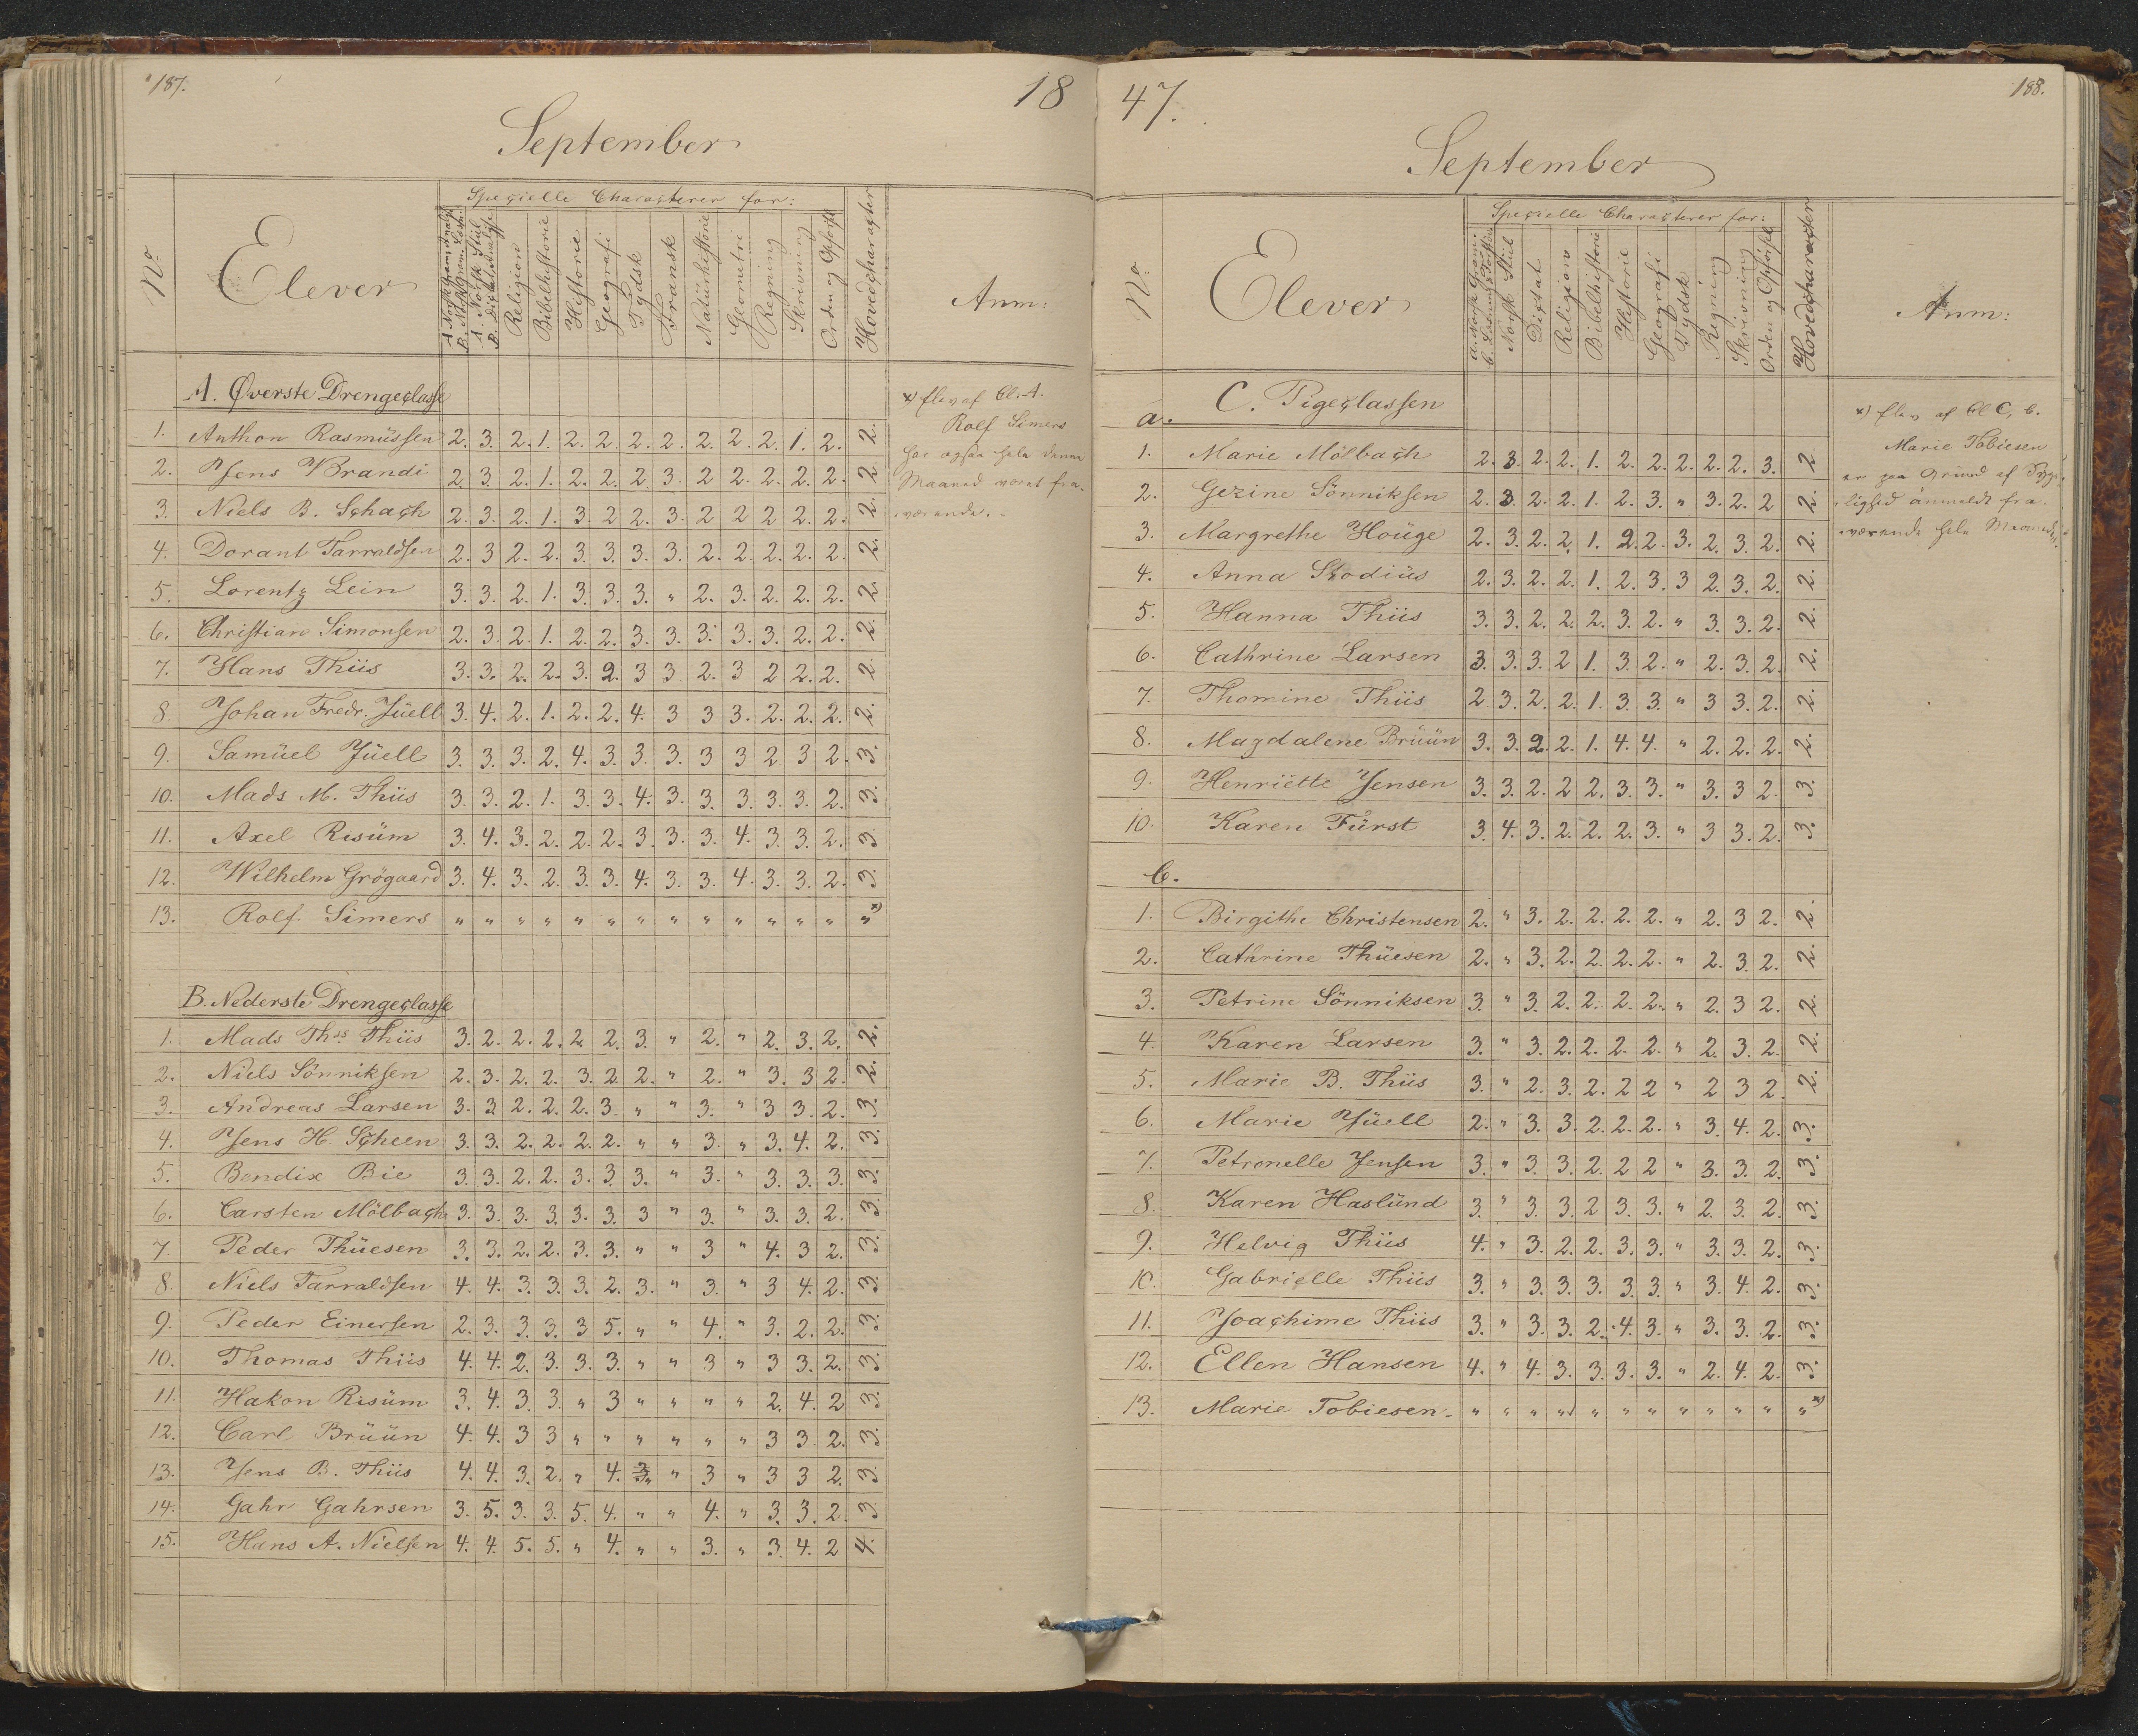 187.
18
September
No
Elever
Specielle Characterer for:
A. Norsk Gram. Analys
B. N. Gram. Læsn.
A. Norsk Stiil
B. Dictat Analyse
Religion
Bibelhistorie
Historie
Geografi
Tydsk
Fransk
Natürhistorie
Geometri
Regning
Skrivning
Orden og Opførsl
Hovedcharacter
Anm:
A. Øverste Drengeclasse
1. Anthon Rasmüssen 2. 3. 2. 1. 2. 2. 2. 2. 2. 2. 2. 1. 2. 2.
2. Jens Brandi 2. 3. 2. 1. 2. 2. 2. 3. 2 2. 2. 2. 2. 2.
3. Niels B. Schach 2. 3. 2. 1. 3. 2 2. 3. 2 2 2 2. 2. 2.
4. Dorant Tarraldsen 2. 3 2. 2. 3. 3. 3. 3. 2. 2. 2. 2. 2. 2.
5. Lorentz Lein 3. 3. 2. 1. 3. 3. 3. " 2. 3. 2. 2. 2. 2.
6. Christian Simonsen 2. 3. 2. 1. 2. 2. 3. 3. 3. 3. 3. 2. 2. 2.
7. Hans Thiis 3. 3. 2. 2. 3. 2. 3 3 2. 3 2 2. 2. 2.
8. Johan Fredr. Jüell 3. 4. 2. 1. 2. 2. 4. 3 3 3. 2. 2. 2. 2.
9. Samüel Jüell 3. 3. 3. 2. 4. 3. 3. 3. 3 3 2 3 2. 3.
10. Mads M. Thiis 3. 3. 2. 1. 3. 3. 4. 3. 3. 3. 3. 3. 2. 3.
11. Axel Risüm 3. 4. 3. 2. 2. 2. 3. 3. 3. 4. 3. 3. 2. 3
12. Wilhelm Grögaard 3. 4. 3. 2. 3. 3. 4. 3. 3. 4. 3. 3. 2. 3.
13. Rolf Simers " " " " " " " " " " " " " " x)
B. Nederste Drengeclasse
1. Mads Ths Thiis 3. 2. 2. 2. 2 2. 3. " 2. " 2. 3. 2. 2.
2. Niels Sönniksen 2. 3. 2. 2. 3. 2. 2. " 2. " 3. 3 2. 2.
3. Andreas Larsen 3. 3 2. 2. 2. 3. " " 3. " 3 3. 2. 3.
4. Jens H. Scheen 3. 3. 2. 2. 2. 2. " " 3. " 3. 4. 2. 3.
5. Bendix Bie 3. 3 2. 2. 3. 3. 3. " 3. " 3. 3. 3. 3.
6. Carsten Mölbach 3. 3. 3. 3. 3. 3. 3 " 3. " 3. 3. 2. 3.
7. Peder Thüesen 3. 3. 2. 2. 3. 3. " " 3 " 4. 3 2. 3.
8. Niels Tarraldsen 4. 4. 3. 3. 3 2. 3. " 3. " 3 4. 2. 3.
9. Peder Einersen 2. 3. 3. 3. 3 5. " " 4. " 3. 2. 2. 3.
10. Thomas Thiis 4. 4. 2. 3. 3. 3. " " 3 " 3 3. 2. 3.
11. Hakon Risüm 3. 4. 3. 3. " 3 " " " " 2. 4. 2 3.
12. Carl Brüün 4. 4. 3 3 " " " " " " 3 3. 2. 3.
13. Jens B. Thiis 4. 4. 3. 2. " 4. " " 3 " 3 3 2. 3.
14. Gahr Gahrsen 3. 5. 3. 3. 5. 4. " " 4. " 3. 3. 2. 3
15. Hans A. Nielsen 4. 4. 5. 5. " 4. " " 3. " 3. 4. 2 4.
x) Elev af Cl. A.
Rolf Simers
har ogsaa hele denne
Maaned været fra-
værende. -
47.
188.
September
No
Elever
Specielle Characterer for:
a. Norsk Gram.
Norsk Stiil
Dictat
Religion
Bibelhistorie
Historie
Geografi
Tydsk
Regning
Skrivning
Orden og Opførsl
Hovedcharacter
Anm:
C. Pigeclassen
a.
1. Marie Mölbach 2. 3. 2. 2. 1. 2. 2. 2. 2. 2. 3. 2
2. Gezine Sönniksen 2. 3 2. 2. 1. 2. 3. " 3. 2. 2 2.
3. Margrethe Houge 2. 3. 2. 2. 1. 2. 2. 3. 2. 3. 2. 2.
4. Anna Stodiüs 2. 3. 2. 2. 1. 2. 3. 3 2. 3. 2. 2.
5. Hanna Thiis 3. 3. 2. 2. 2. 3. 2. " 3. 3. 2. 2.
6. Cathrine Larsen 3. 3. 3. 2 1. 3. 2. " 2. 3. 2. 2.
7. Thomine Thiis 2 3. 2. 2. 1. 3. 3. " 3 3. 2. 2.
8. Magdalene Brüün 3. 3. 2. 2. 1. 4. 4. " 2. 2. 2. 2.
9. Henriette Jensen 3. 3. 2. 2 2. 3. 3. " 3. 3 2. 3.
10. Karen Fürst 3. 4. 3. 2. 2. 2. 3. " 3 3. 2. 3.
b.
1. Birgithe Christensen 2. " 3. 2. 2. 2. 2. " 2. 3 2. 2.
2. Cathrine Thüesen 2. " 3. 2. 2. 2. 2. " 2. 3. 2. 2.
3. Petrine Sönniksen 3. " 3. 2. 2. 2. 2. " 2. 3 2. 2.
4. Karen Larsen 3. " 3. 2. 2. 2. 2. " 2. 3. 2. 2.
5. Marie B. Thiis 3. " 2. 3. 2. 2 2 " 2 3 2. 2.
6. Marie Jüell 2. " 3. 3. 2. 2. 2. " 3. 4. 2. 3.
7. Petronelle Jensen 3. " 3. 3. 2. 2 2 " 3. 3. 2. 3.
8. Karen Haslünd 3. " 3. 3. 2 3. 3. " 2. 3. 2. 3.
9. Helvig Thiis 4. " 3. 2. 2. 3. 3. " 3. 3. 2. 3.
10. Gabrielle Thiis 3. " 3. 3. 3. 3. 3. " 3. 4. 2. 3.
11. Joachime Thiis 3. " 3. 3. 2. 4. 3. " 3. 3. 2. 3.
12. Ellen Hansen 4. " 4. 3. 3. 3. 3. " 2. 4. 2. 3.
13. Marie Tobiesen " " " " " " " " " " " " x)
x) Elev af Cl C, b.
Marie Tobiesen
er paa Gründ af Syge-
lighed anmeldt fra-
værende hele Maaneden.